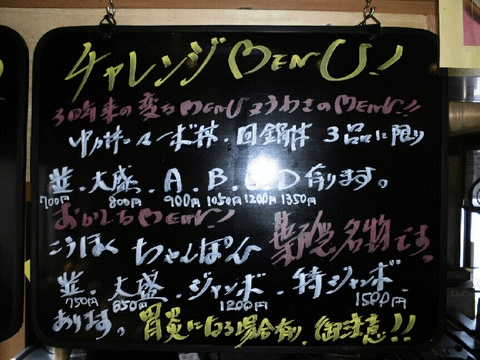 チャレンジMENU!!
30年来の変なMENUとうわさのMENU!!
中カ丼 マーボ丼・回鍋丼 3品に限り
並・大盛・A・B・C・D有ります。
700円 800円 900円 1050円 1200円 1350円
おかしなMENU!!
こうほく ちゃんぽん 薬院名物です。
並・大盛・ジャンボ・特ジャンボ
750円 850円 1200円 1500円
あります。胃炎になる場合有り、御注意!!